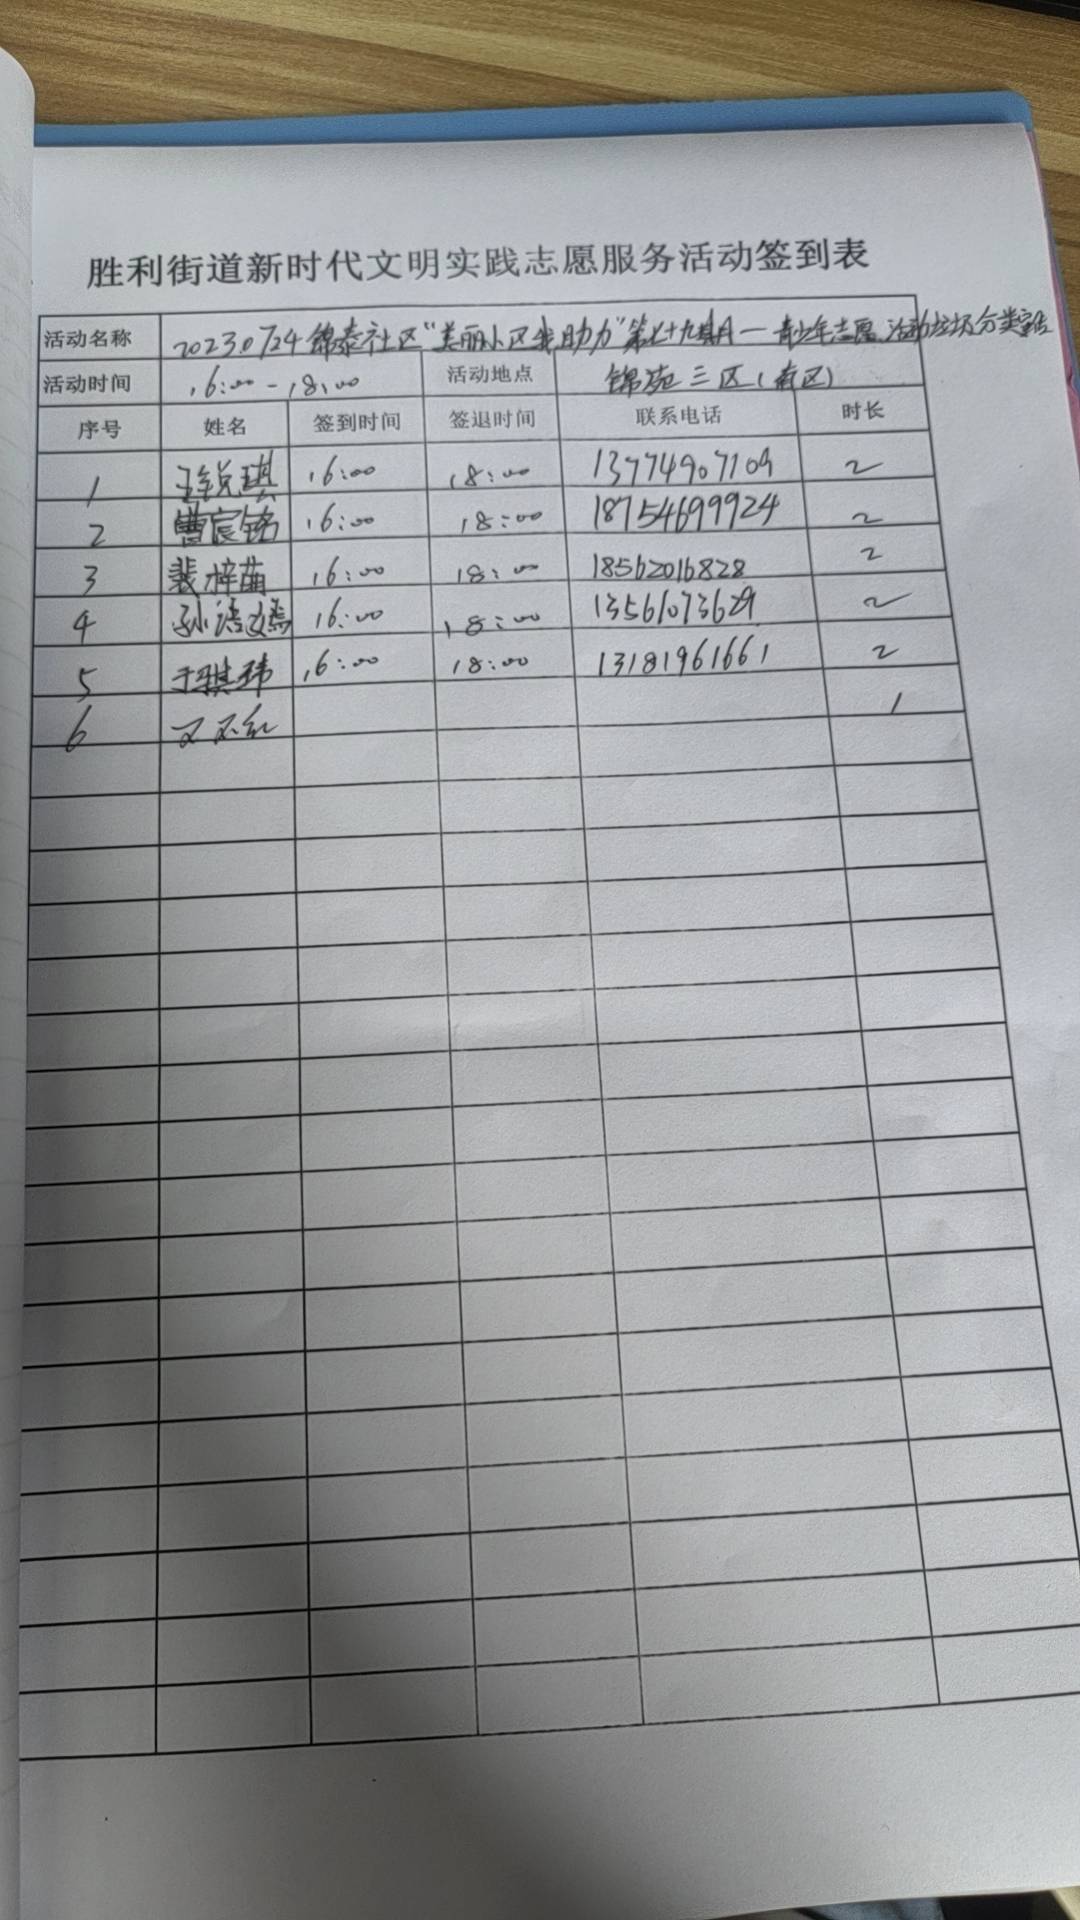 胜利街道新时代文明实践志愿服务活动签到表
活动名称 20230724锦泰社区"美丽小区我助力"第七十九期—青少年志愿活动垃圾分类宣传
活动时间 16:00-18:00 活动地点 锦苑三区(南区)
序号 姓名 签到时间 签退时间 联系电话 时长
1 王锐琪 16:00 18:00 13774907109 2
2 曹宸铭 16:00 18:00 18754699924 2
3 裴梓萌 16:00 18:00 18562016828 2
4 孙语嫣 16:00 18:00 13561073629 2
5 于骐玮 16:00 18:00 13181961661 2
6 1